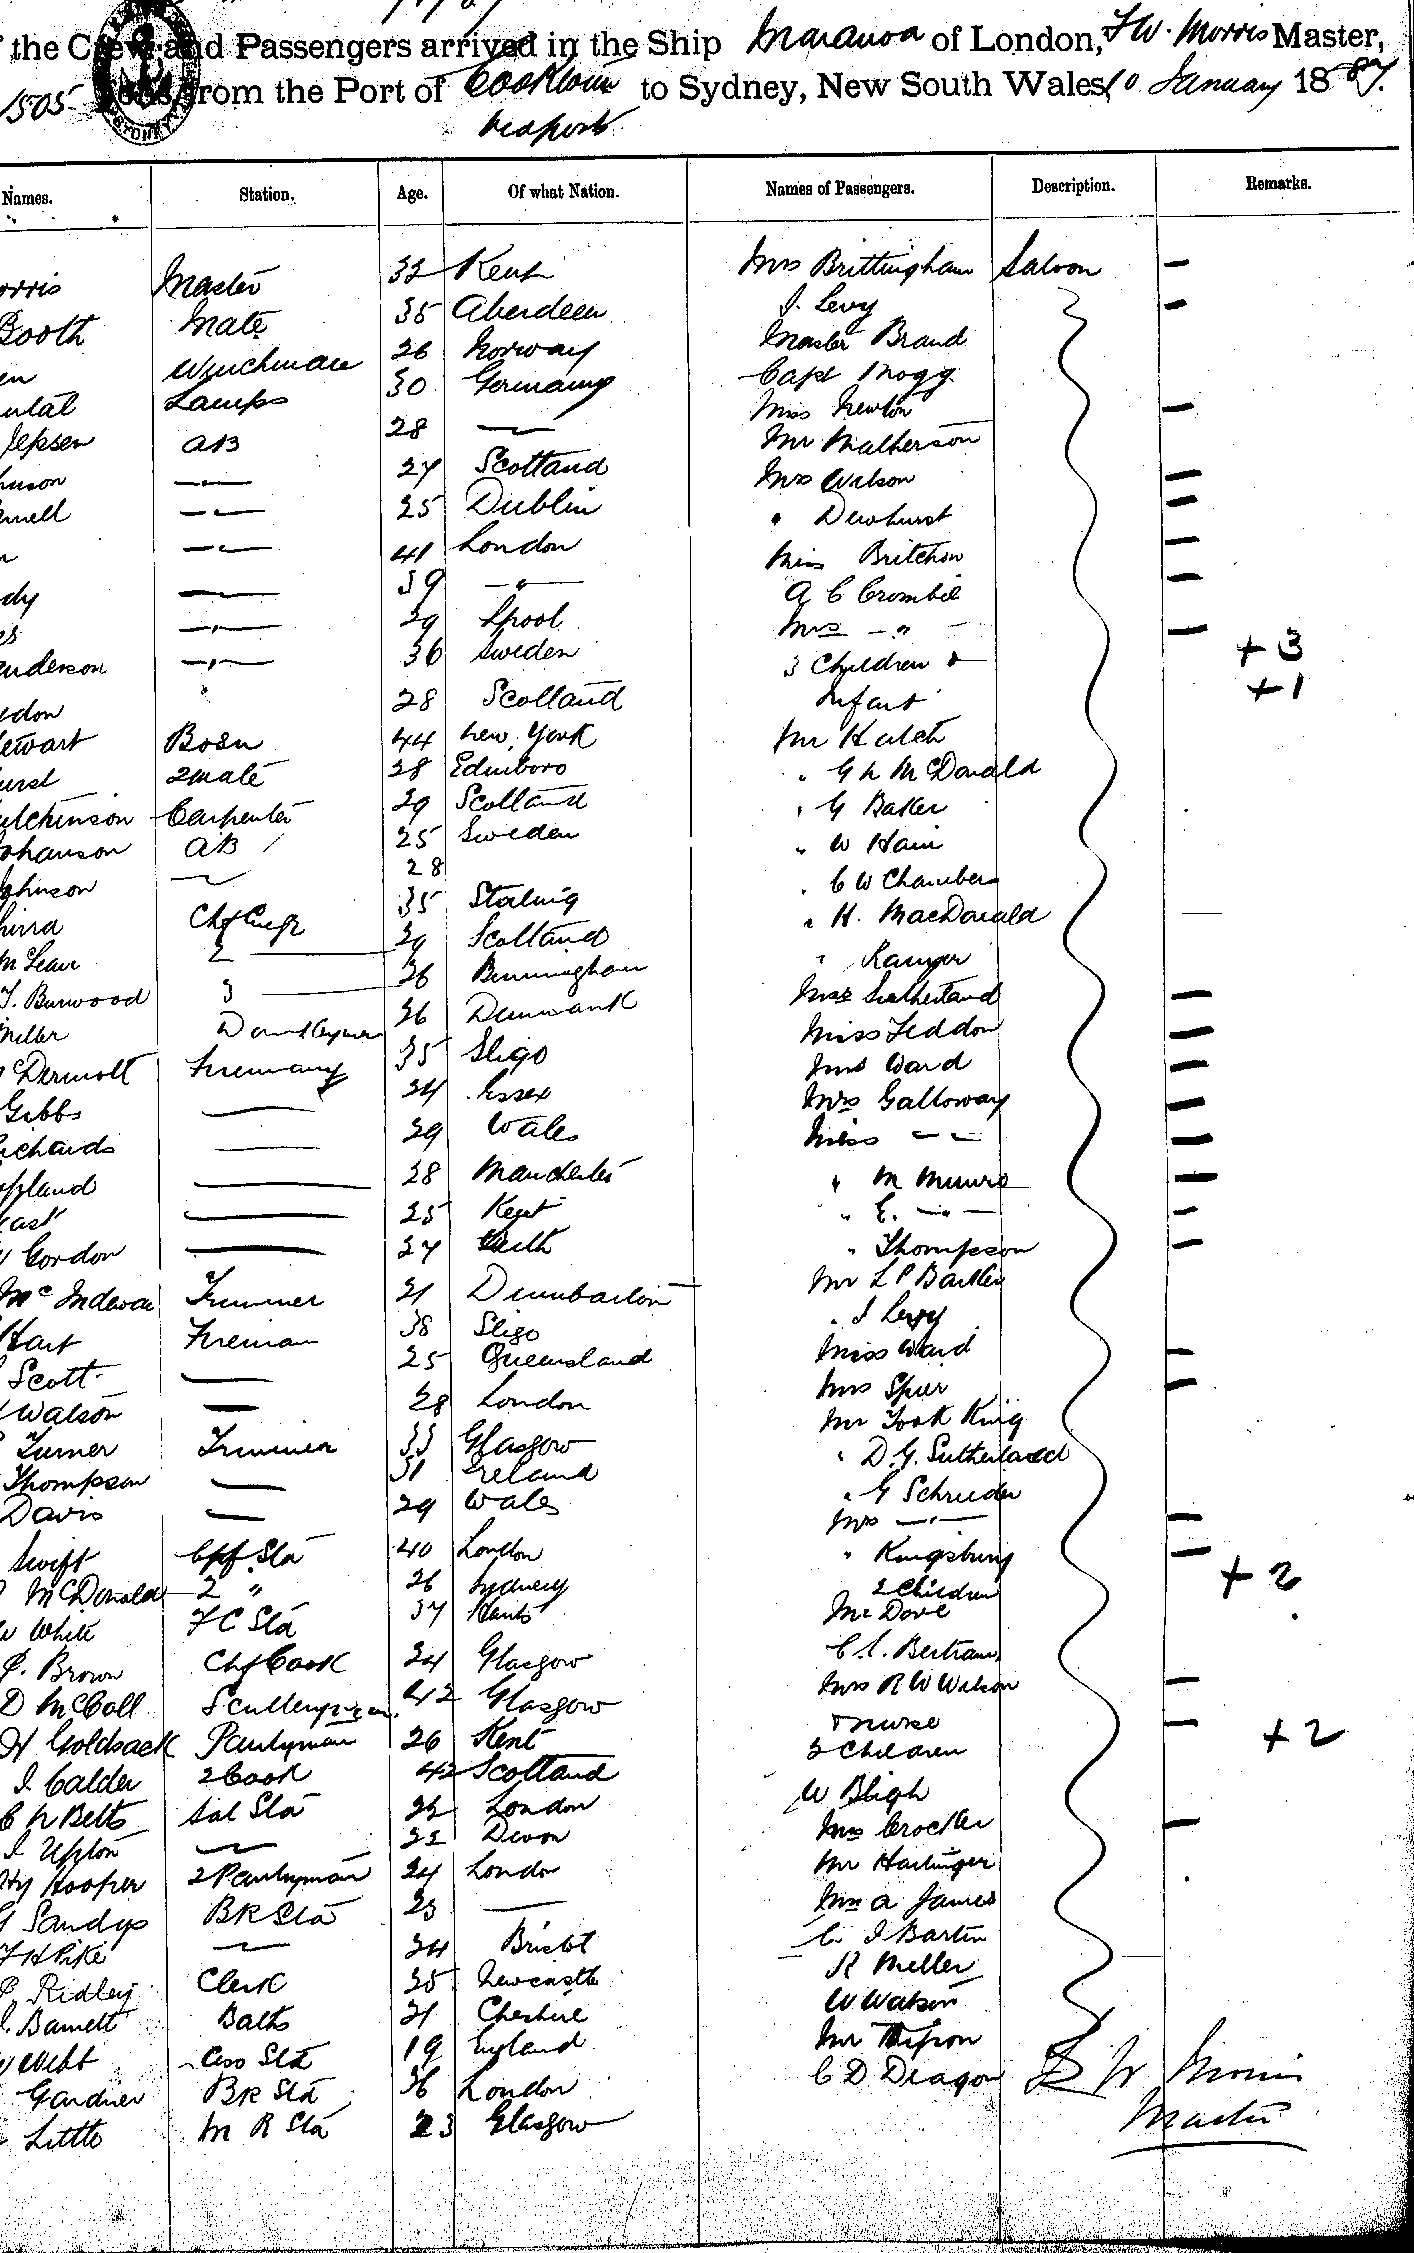 the Crew and Passengers arrived in the Ship Maranoa of London, F W. Morris Master,
1505 Tons, from the Port of Cooktown to Sydney, New South Wales, 10 January 1887.
via ports
Names. Station. Age. Of what Nation. Names of Passengers. Description. Remarks.
orris Master 32 Kent Mrs Brittingham Saloon —
Booth Mate 35 Aberdeen J. Levy —
en Winchman 26 Norway Master Brand
Lamps 30 Germany Capt Mogg
Jepsen AB 28 — Miss Newton —
hnson —"— 27 Scotland Mr Matherson
—"— 25 Dublin Mrs Watson —
n —"— 41 London " Dewhurst —
dy — 39 —"— Miss Britchon —
—"— 29 Lpool A C Crombie —
enderson —"— 36 Sweden Mrs —"— —
edon " 28 Scotland 3 Children & + 3
ewart Bosn 44 New York Infant + 1
urst 2 Mate 28 Edinboro Mr Hatch
utchinson Carpenter 29 Scotland " G h McDonald
ohanson AB 25 Sweden " G Baker
Johnson — 28 " W Hain
Chf Engr 35 Starling " C W Chambers
McLean 2 — 29 Scotland " H. MacDonald
T. Burwood 3 — 26 Birmingham " Ranger
Miller Donkeyman 26 Denmark Mrs Sutherland —
McDermott Fireman 35 Sligo Miss Seddon —
Gibbs — 24 Essex Mrs Ward —
Richards — 29 Wales Mrs Galloway —
opland — 28 Manchester Miss —"— —
east — 25 Kent " M Munro —
Gordon — 27 Leith " E. —"— —
Mc Indewar Trimmer 21 Dumbarton " Thompson —
Hart Fireman 38 Sligo Mr L P Barker
Scott — 25 Queensland " J Levy
Watson — 28 London Miss Ward —
Turner Trimmer 33 Glasgow Mrs Spier —
Thompson — 31 Ireland Mr Took King
Davis — 29 Wales " D. G. Sutherland
Swift Chf Std 40 London " G Schrieder
McDonald 2 " 26 Sydney Mrs —"— —
W White F C Std 37 Hants " Kingsbury —
P. Brown Chf Cook 24 Glasgow 2 Children + 2
D McCall Sculleryman 42 Glasgow Mr Dove
H Goldsack Pantryman 26 Kent C. L. Bertram
J. Calder 2 Cook 42 Scotland Mrs R W Watson —
C N Betts Sal Std 22 London & nurse —
J Upton — 22 Devon 2 Children + 2
Hy Hooper 2 Pantryman 24 London W Bligh
G Sandys BR Std 23 — Mrs Crocker —
F H Pike — 24 Bristol Mr Hartinger
P Ridley Clerk 25 Newcastle Mrs A James
J. Barnett Baths 21 Cheshire C. J Bartin
Webb Ass Std 19 England R Miller
Gardner BR Std 36 London W Watson
Little M R Std 23 Glasgow Mr
C D Dragon
F W Morris
Master